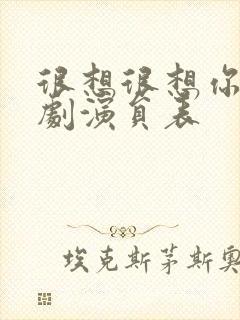 很想很想你
劇演員表
埃克斯茅斯奧